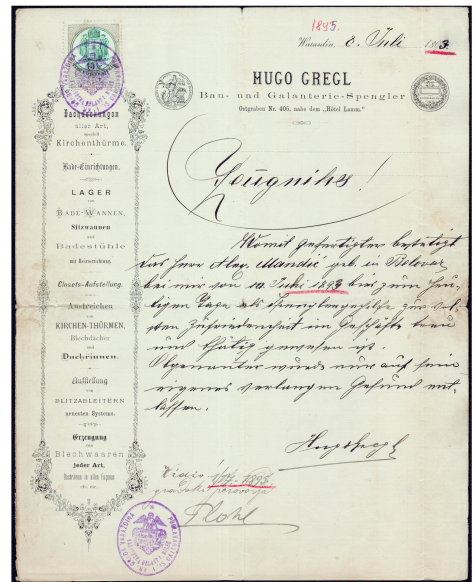 1895.
Warasdin, 8. Juli 1893.
HUGO GREGL
Bau- und Galanterie-Spengler
Ostgraben Nr. 405, nahe dem „Hôtel Lamm.“
Dacheindeckungen
aller Art,
speciell
Kirchenthürme.
Bade-Einrichtungen.
LAGER
von
BADE-WANNEN,
Sitzwannen
und
Badestühle
mit Heizvorrichtung.
Closets-Aufstellung.
Anstreichen
von
KIRCHEN-THÜRMEN,
Blechdächer
und
Dachrinnen.
Aufstellung
von
BLITZABLEITERN
neuesten Systems.
Erzeugung
von
Blechwaaren
jeder Art,
Dachrinnen in allen Façonen
etc. etc.
Zeugniß!
Womit gefertigter bestätigt
das Herr Alex. Mandić geb. in Belovar
bei mir von 10. Juli 1892 bis zum heu-
tigen Tage als Spenglergehilfe zur voll-
sten Zufriedenheit im Geschäfte treu
und thätig gewesen ist.
Obgenannter wurde nur auf sein
eigenes verlangen Gesund ent-
lassen.
Hugo Gregl
Vidio
Plohl